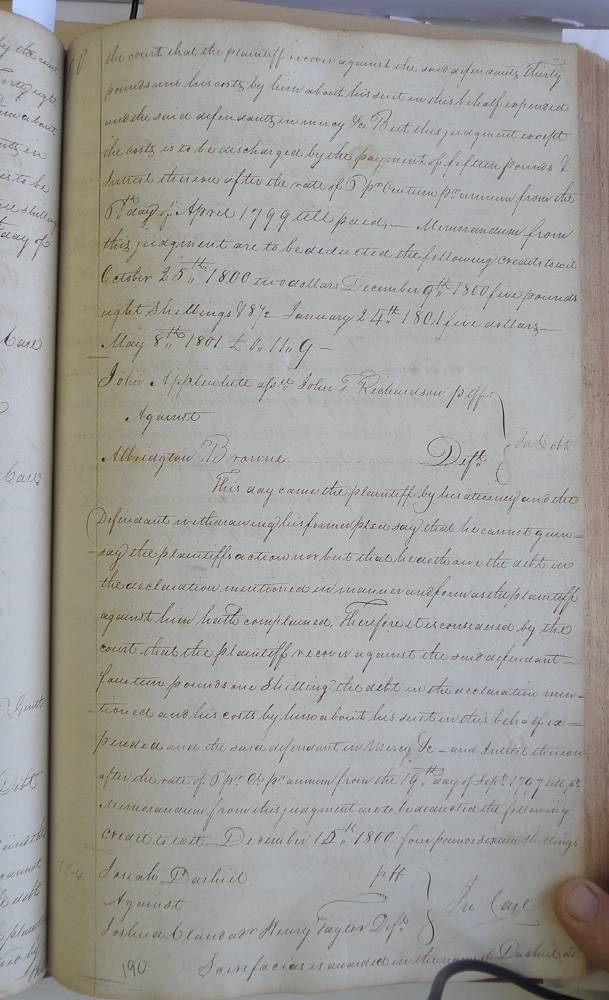 the court that the plaintiff recover against the said defendants thirty
pounds and his costs by him about his suit in this behalf expended
and the said defendants in mercy &c But this judgment except
the costs is to be discharged by the payment of fifteen pounds &
Interest thereon after the rate of 5 pr Centum pr annum from the
day of April 1799 till paid, — Memorandum from
this judgment are to be deducted the following credits to wit
October 25th 1800 two dollars December 9th 1800 five pounds
eight Shillings & January 24th 1801 five dollars —
May 8th 1801 £ 0,, 11,, 9 —
John Applewhite assee John T Richardson plff
Against
In Debt
Albridgton Browne Deft
This day came the plaintiff by his attorney and the
Defendant withdrawing his former plea say that he cannot gain=
say the plaintiffs action nor but that he doth owe the debt in
the declaration mentioned in manner and form as the plaintiff
against him hath complained, Therefore it is considered by the
court that the plaintiff recover against the said defendant —
fourteen pounds one Shilling the debt in the declaration men-
tioned and his costs by him about his suit in this behalf ex=
pended and the said defendant in Mercy &c — and Interest thereon
after the rate of 5 pr Ct pr annum from the 19th day of Sept. 1797 till pd.
Memorandum from this judgment are to be deducted the following
credit to wit December 15th 1800 four pounds sixteen shillings
Josiah Dashiel plff
Against
In Case
Joshua Claud Henry Taylor Defts
Scirefacias is awarded in the name of Dashiel
190